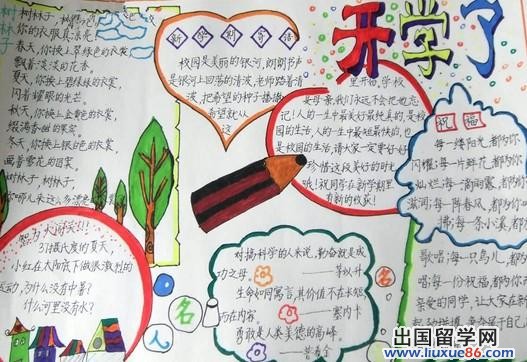 开学了
树林子
树林子,树林子
你的衣服真漂亮
春天,你换上翠绿色的衣裳
飘着淡淡的花香。
夏天,你换上碧绿的衣裳
闪着耀眼的光芒
秋天,你换上金黄色的衣裳
缀满香甜的果实
冬天,你换上银白色的衣裳
画着雪花的图案。
树林子,树林子
新学期寄语
校园是美丽的银河,朗朗书声
是银河上回荡的清波,老师踏着清
波,把希望的种子播撒
希望就从
这
里开始,学校
是母亲,我们永远不会把她忘
记!人的一生中最美好最快乐的,是校
园的生活,人的一生中最难忘的,也
是校园的生活,请大家一定要学会
珍惜这段美好的时光
哦!祝同学在新学期里
有新的收获!
祝福
每一缕阳光,都为你
闪耀;每一片鲜花,都为你
灿烂;每一滴雨露,都为你
滋润;每一阵春风,都为你
拂;每一条小溪,都为你
歌唱;每一只鸟儿,都为
唱;每一份祝福,都为你
亲爱的同学,让大家在新
智力大闯关!!
31摄氏度的夏天,
小红在太阳底下做很激烈的
运动,为什么没有中暑?
什么河里没有水?
名人名
对搞科学的人来说,勤奋就是成
功之母。
——茅以升
生命如同寓言,其价值不在长短
而在内容。
——塞内卡
勇敢是人类美德的高峰
出国留学网
www.liuxue86.com